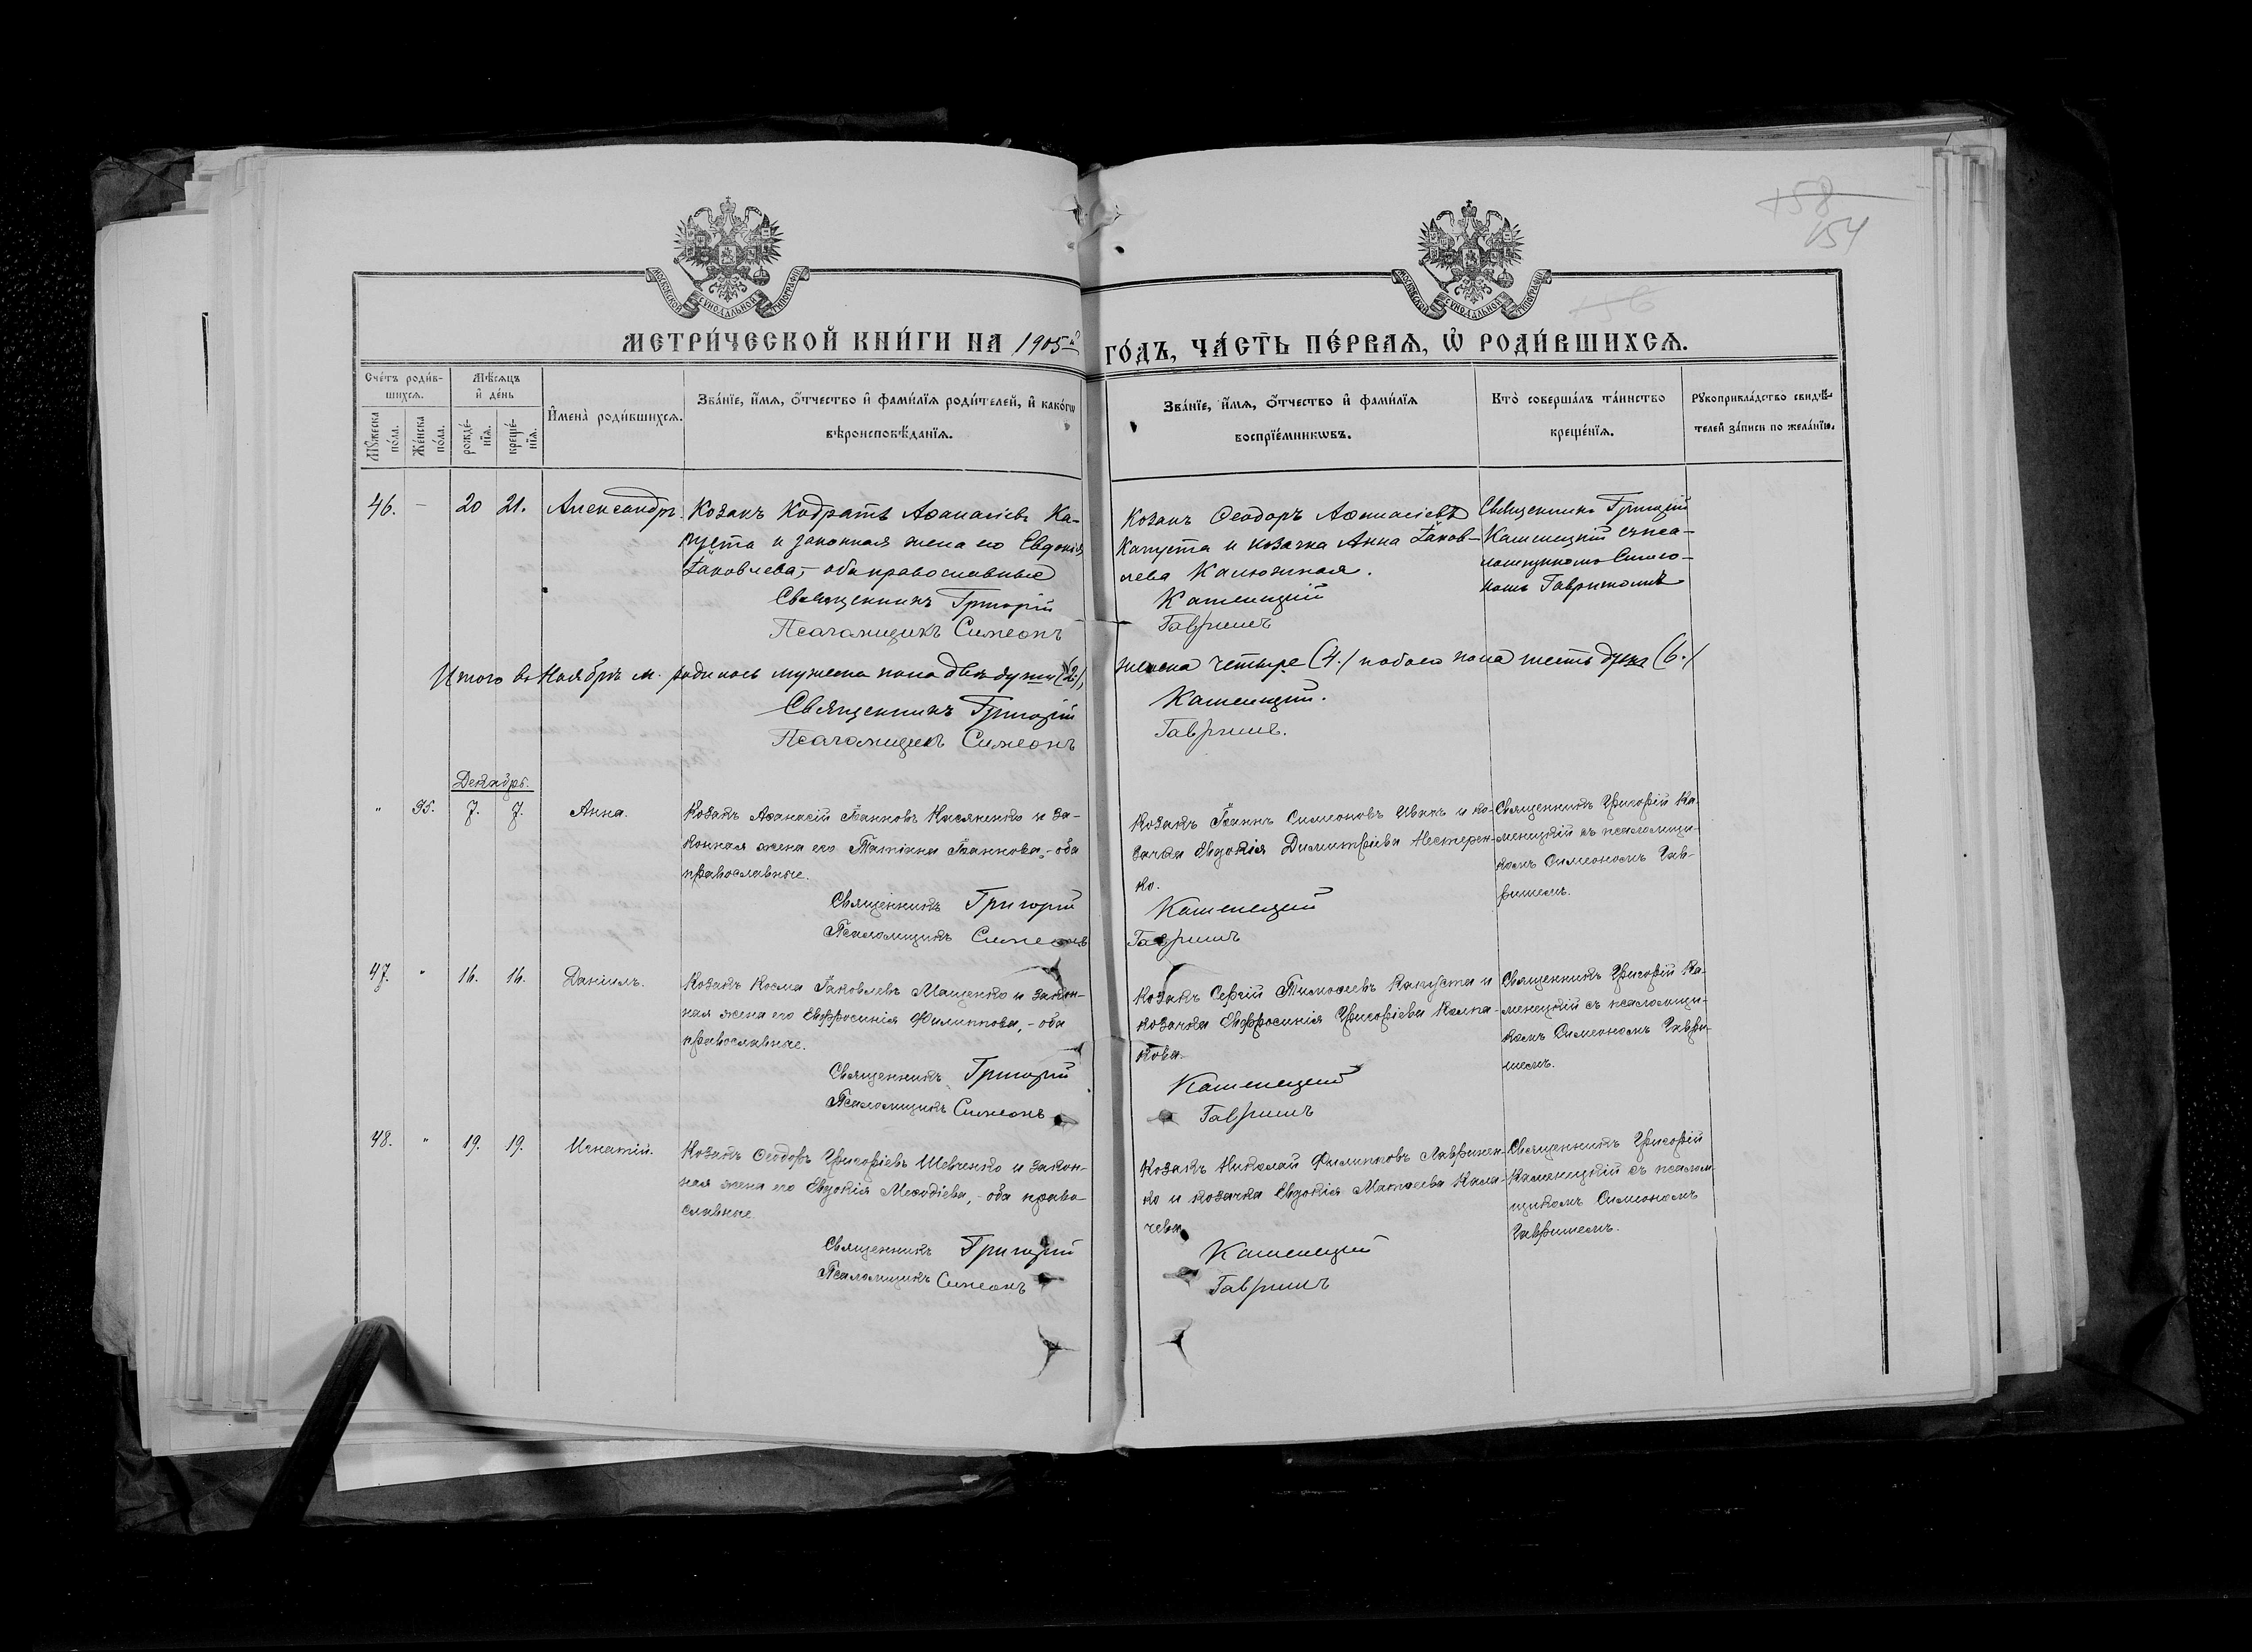 158
154
56
МОСКОВСКОЙ СѴНОДАЛЬНОЙ ТИПОГРАФІИ
МОСКОВСКОЙ СѴНОДАЛЬНОЙ ТИПОГРАФІИ
МЕТРИ́ЧЕСКОЙ КНИ́ГИ НА 1905й ГО́ДЪ, ЧА́СТЬ ПЕ́РВАЯ, Ѡ҆ РОДИ́ВШИХСЯ.
Сче́тъ роди́в-
шихся.
Мꙋ́жеска по́ла.
Же́нска по́ла.
Мѣ́сяцъ
и҆ де́нь
рожде́-
нїя.
креще́-
нїя.
И҆мена̀ роди́вшихся.
Зва́нїе, и҆́мя, ѻ҆́тчество и҆ фами́лїя роди́телей, и҆ како́гѡ
вѣроисповѣ́данїя.
Зва́нїе, и҆́мя, ѻ҆́тчество и҆ фами́лїя
воспрїе́мникѡвъ.
Кто̀ соверша́лъ та́инство
креще́нїя.
Рꙋкоприкла́дство свидѣ́-
телей за́писи по жела́нїю.
46. – 20 21. Александръ.
Козакъ Кодратъ Аѳанасіевъ Ка-
пуста и законная жена его Евдокія
Іаковлева, – оба православные
Священникъ Григорій
Псаломщикъ Симеонъ
Козакъ Ѳеодоръ Аѳанасіевъ
Капуста и козачка Анна Іаков-
лева Калюжная.
Каменецкій
Гавришъ
Священникъ Григорій
Каменецкій съ пса-
ломщикомъ Симео-
номъ Гавришомъ
Итого въ Ноябрѣ м. родилось мужеска пола двѣ души (2.), женска четыре (4.) и обоего пола шесть душъ (6.)
Священникъ Григорій Каменецкій.
Псаломщикъ Симеонъ Гавришъ.
Декабрь.
" 95. 7. 7. Анна.
Козакъ Аѳанасій Іоанновъ Касяненко и за-
конная жена его Татіана Іоаннова, – оба
православные.
Священникъ Григорій
Псаломщикъ Симеонъ
Козакъ Іоаннъ Симеоновъ Ивахъ и ко-
зачка Евдокія Димитріева Нестерен-
ко.
Каменецкій
Гавришъ
Священникъ Григорій Ка-
менецкій съ псаломщи-
комъ Симеономъ Гав-
ришемъ.
47. " 16. 16. Даніилъ.
Козакъ Косма Іаковлевъ Мащенко и закон-
ная жена его Евфросинія Филиппова, – оба
православные.
Священникъ Григорій
Псаломщикъ Симеонъ
Козакъ Сергій Тимоѳеевъ Капуста и
козачка Евфросинія Григоріева Колпа-
кова.
Каменецкій
Гавришъ
Священникъ Григорій Ка-
менецкій съ псаломщи-
комъ Симеономъ Гаври-
шемъ.
48. " 19. 19. Игнатій.
Козакъ Ѳеодоръ Григоріевъ Шевченко и закон-
ная жена его Евдокія Меѳодіева, – оба право-
славные
Священникъ Григорій
Псаломщикъ Симеонъ
Козакъ Николай Филипповъ Лавринен-
ко и козачка Евдокія Матѳеева Кала-
чева
Каменецкій
Гавришъ
Священникъ Григорій
Каменецкій съ псалом-
щикомъ Симеономъ
Гавришемъ.